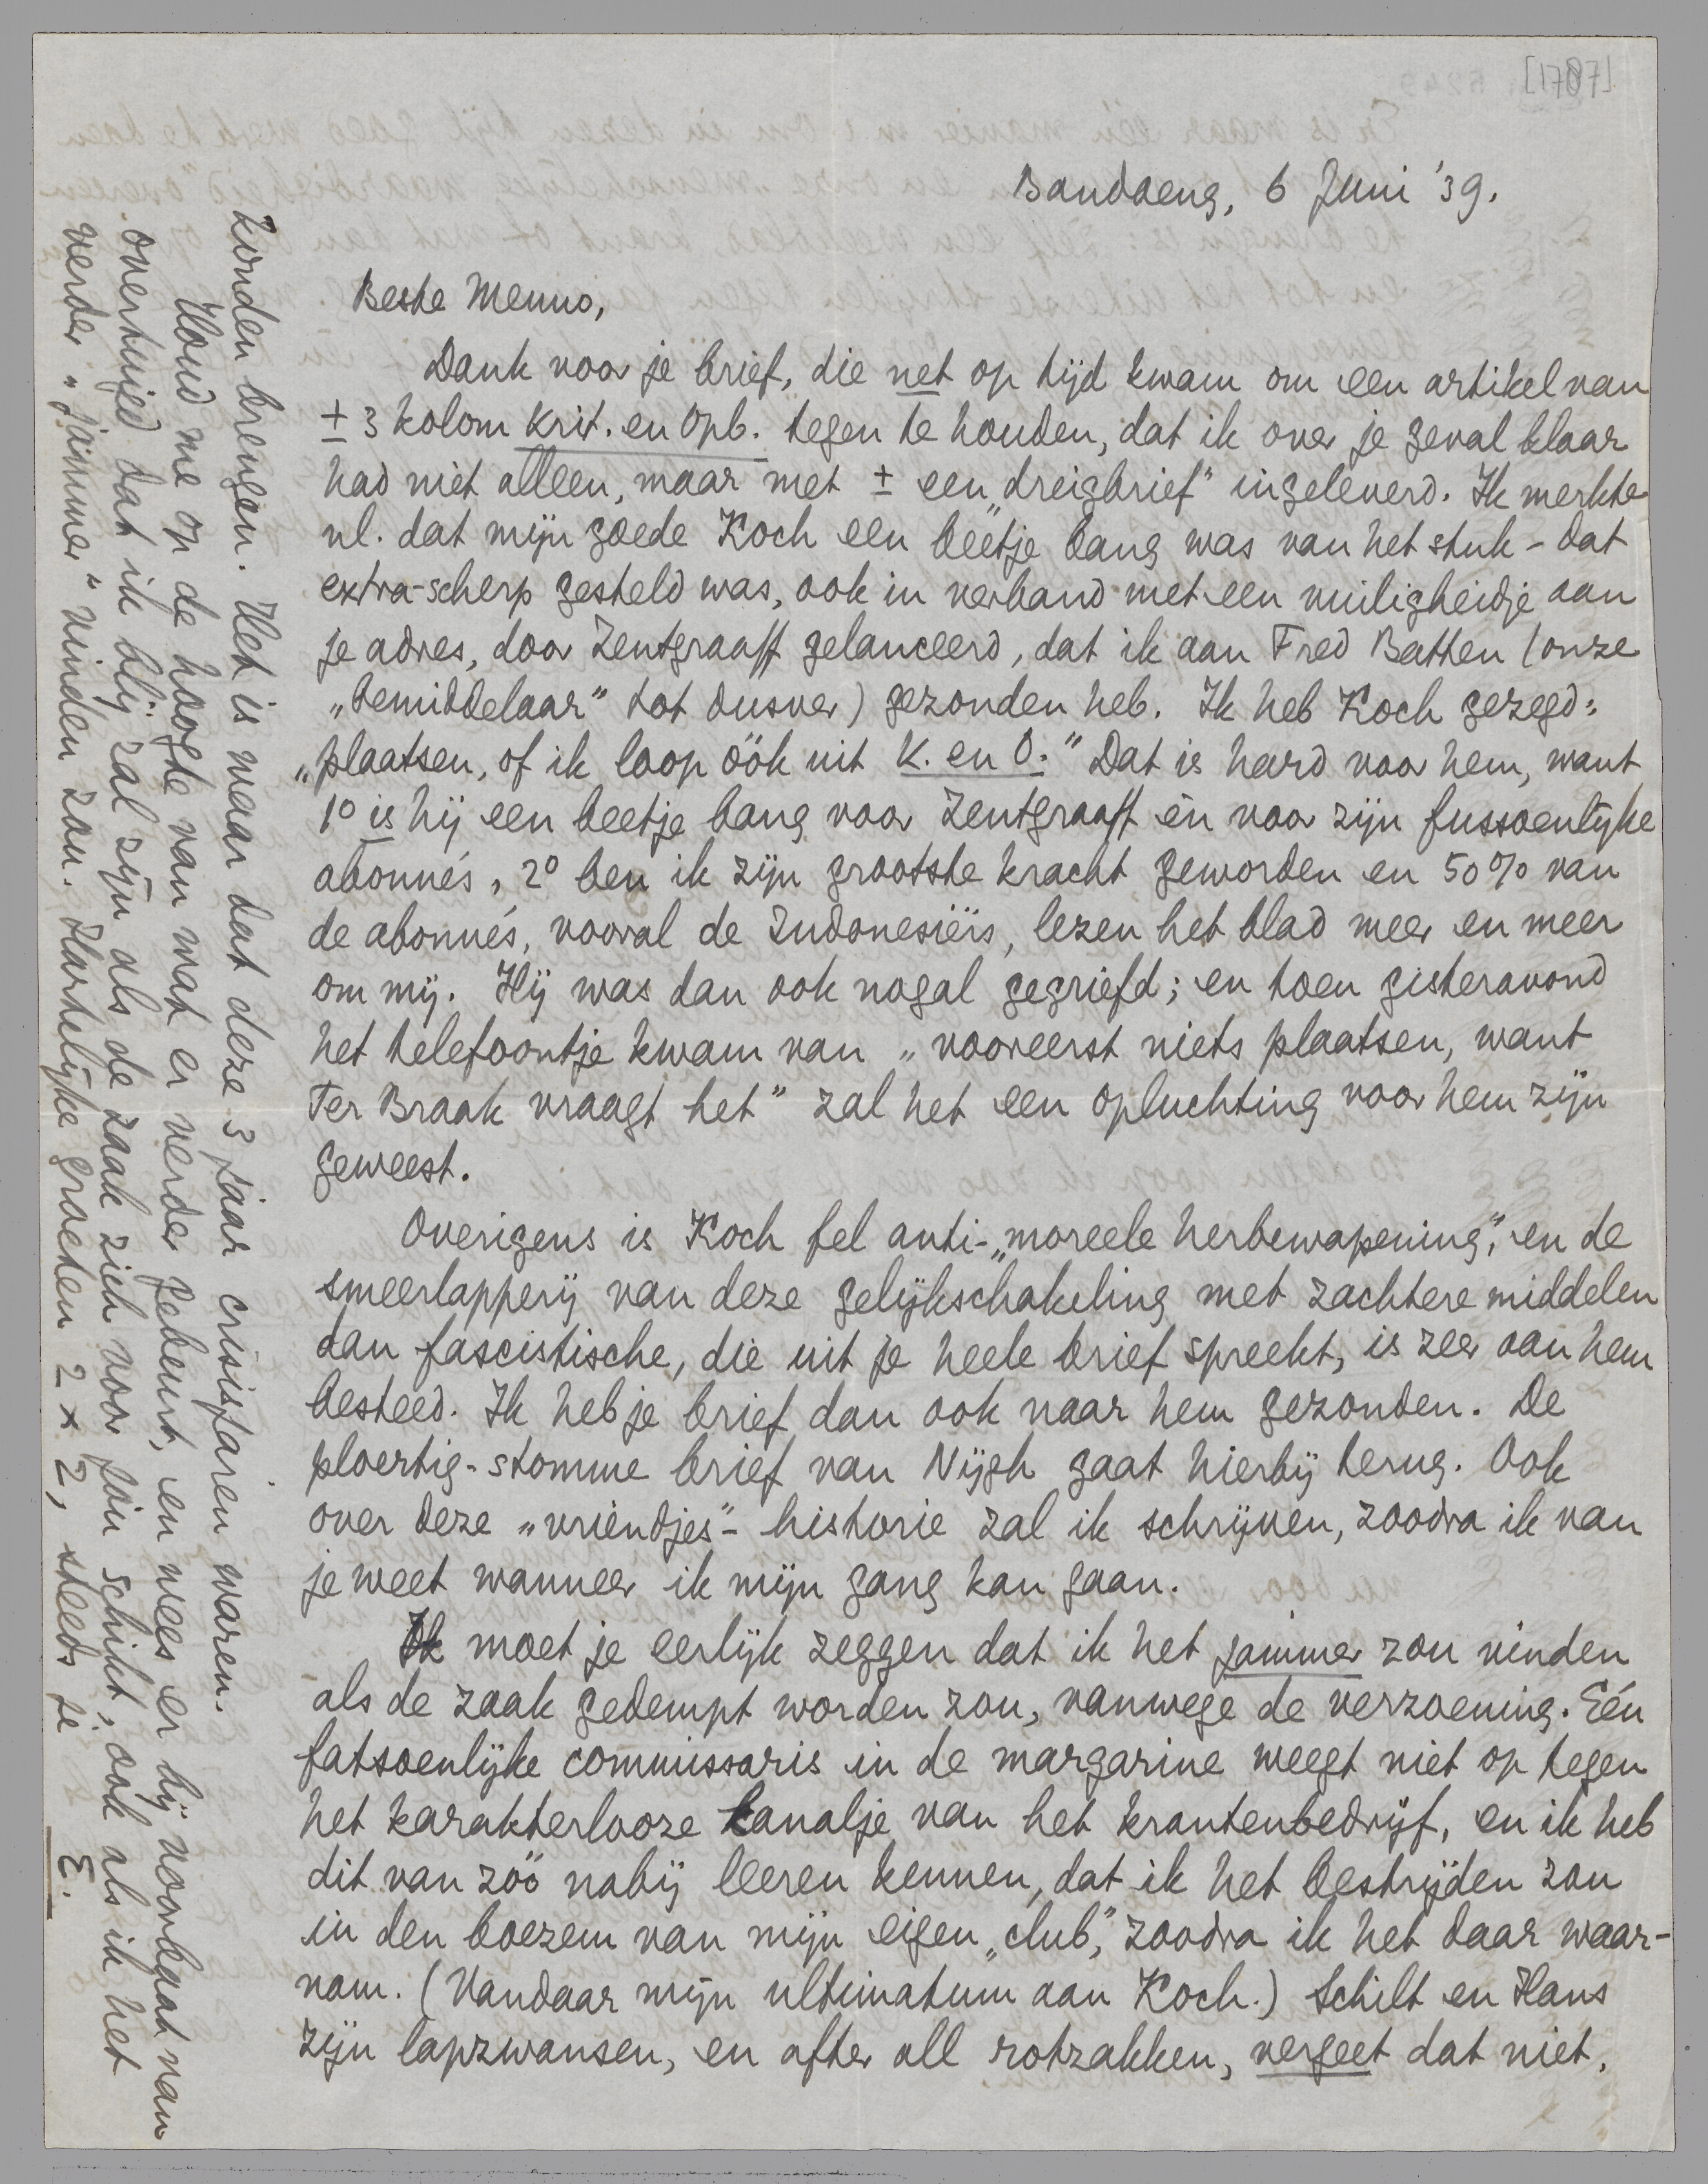 [1787]
Bandoeng, 6 Juni '39.
Beste Menno,
Dank voor je brief, die net op tijd kwam om een artikel van
± 3 kolom Krit. en Opb. tegen te houden, dat ik over je geval klaar
had niet alleen, maar met ± een „dreigbrief” ingeleverd. Ik merkte
nl. dat mijn goede Koch een beetje bang was van het stuk - dat
extra-scherp gesteld was, ook in verband met een vuiligheidje aan
je adres, door Zentgraaff gelanceerd, dat ik aan Fred Batten (onze
„bemiddelaar” tot dusver) gezonden heb. Ik heb Koch gezegd:
„plaatsen, of ik loop óók uit K. en O.” Dat is hard voor hem, want
1° is hij een beetje bang voor Zentgraaff èn voor zijn fussoenlijke
abonné's, 2° ben ik zijn grootste kracht geworden en 50% van
de abonné's, vooral de Indonesiërs, lezen het blad meer en meer
om mij. Hij was dan ook nogal gegriefd; en toen gisteravond
het telefoontje kwam van „vooreerst niets plaatsen, want
Ter Braak vraagt het” zal het een opluchting voor hem zijn
geweest.
Overigens is Koch fel anti-„moreele herbewapening”, en de
smeerlapperij van deze gelijkschakeling met zachtere middelen
dan fascistische, die uit je heele brief spreekt, is zeer aan hem
besteed. Ik heb je brief dan ook naar hem gezonden. De
ploertig-stomme brief van Nijgh gaat hierbij terug. Ook
over deze „vriendjes”-historie zal ik schrijven, zoodra ik van
je weet wanneer ik mijn gang kan gaan.
Ik moet je eerlijk zeggen dat ik het jammer zou vinden
als de zaak gedempt worden zou, vanwege de verzoening. Eén
fatsoenlijke commissaris in de margarine weegt niet op tegen
het karakterlooze kanalje van het krantenbedrijf, en ik heb
dit van zóó nabij leeren kennen, dat ik het bestrijden zou
in den boezem van mijn eigen „club”, zoodra ik het daar waar-
nam. (Vandaar mijn ultimatum aan Koch.) Schilt en Hans
zijn lapzwansen, en after all rotzakken, vergeet dat niet.
zonden brengen. Het is waar dat deze 3 jaar crisisjaren waren.
Houd me op de hoogte van wat er verder gebeurt, en wees er bij voorbaat van
overtuigd dat ik blij zal zijn als de zaak zich voor jou schikt, ook als ik het
verder „jammer” vinden zou. Hartelijke groeten 2 x 2, steeds je
E.